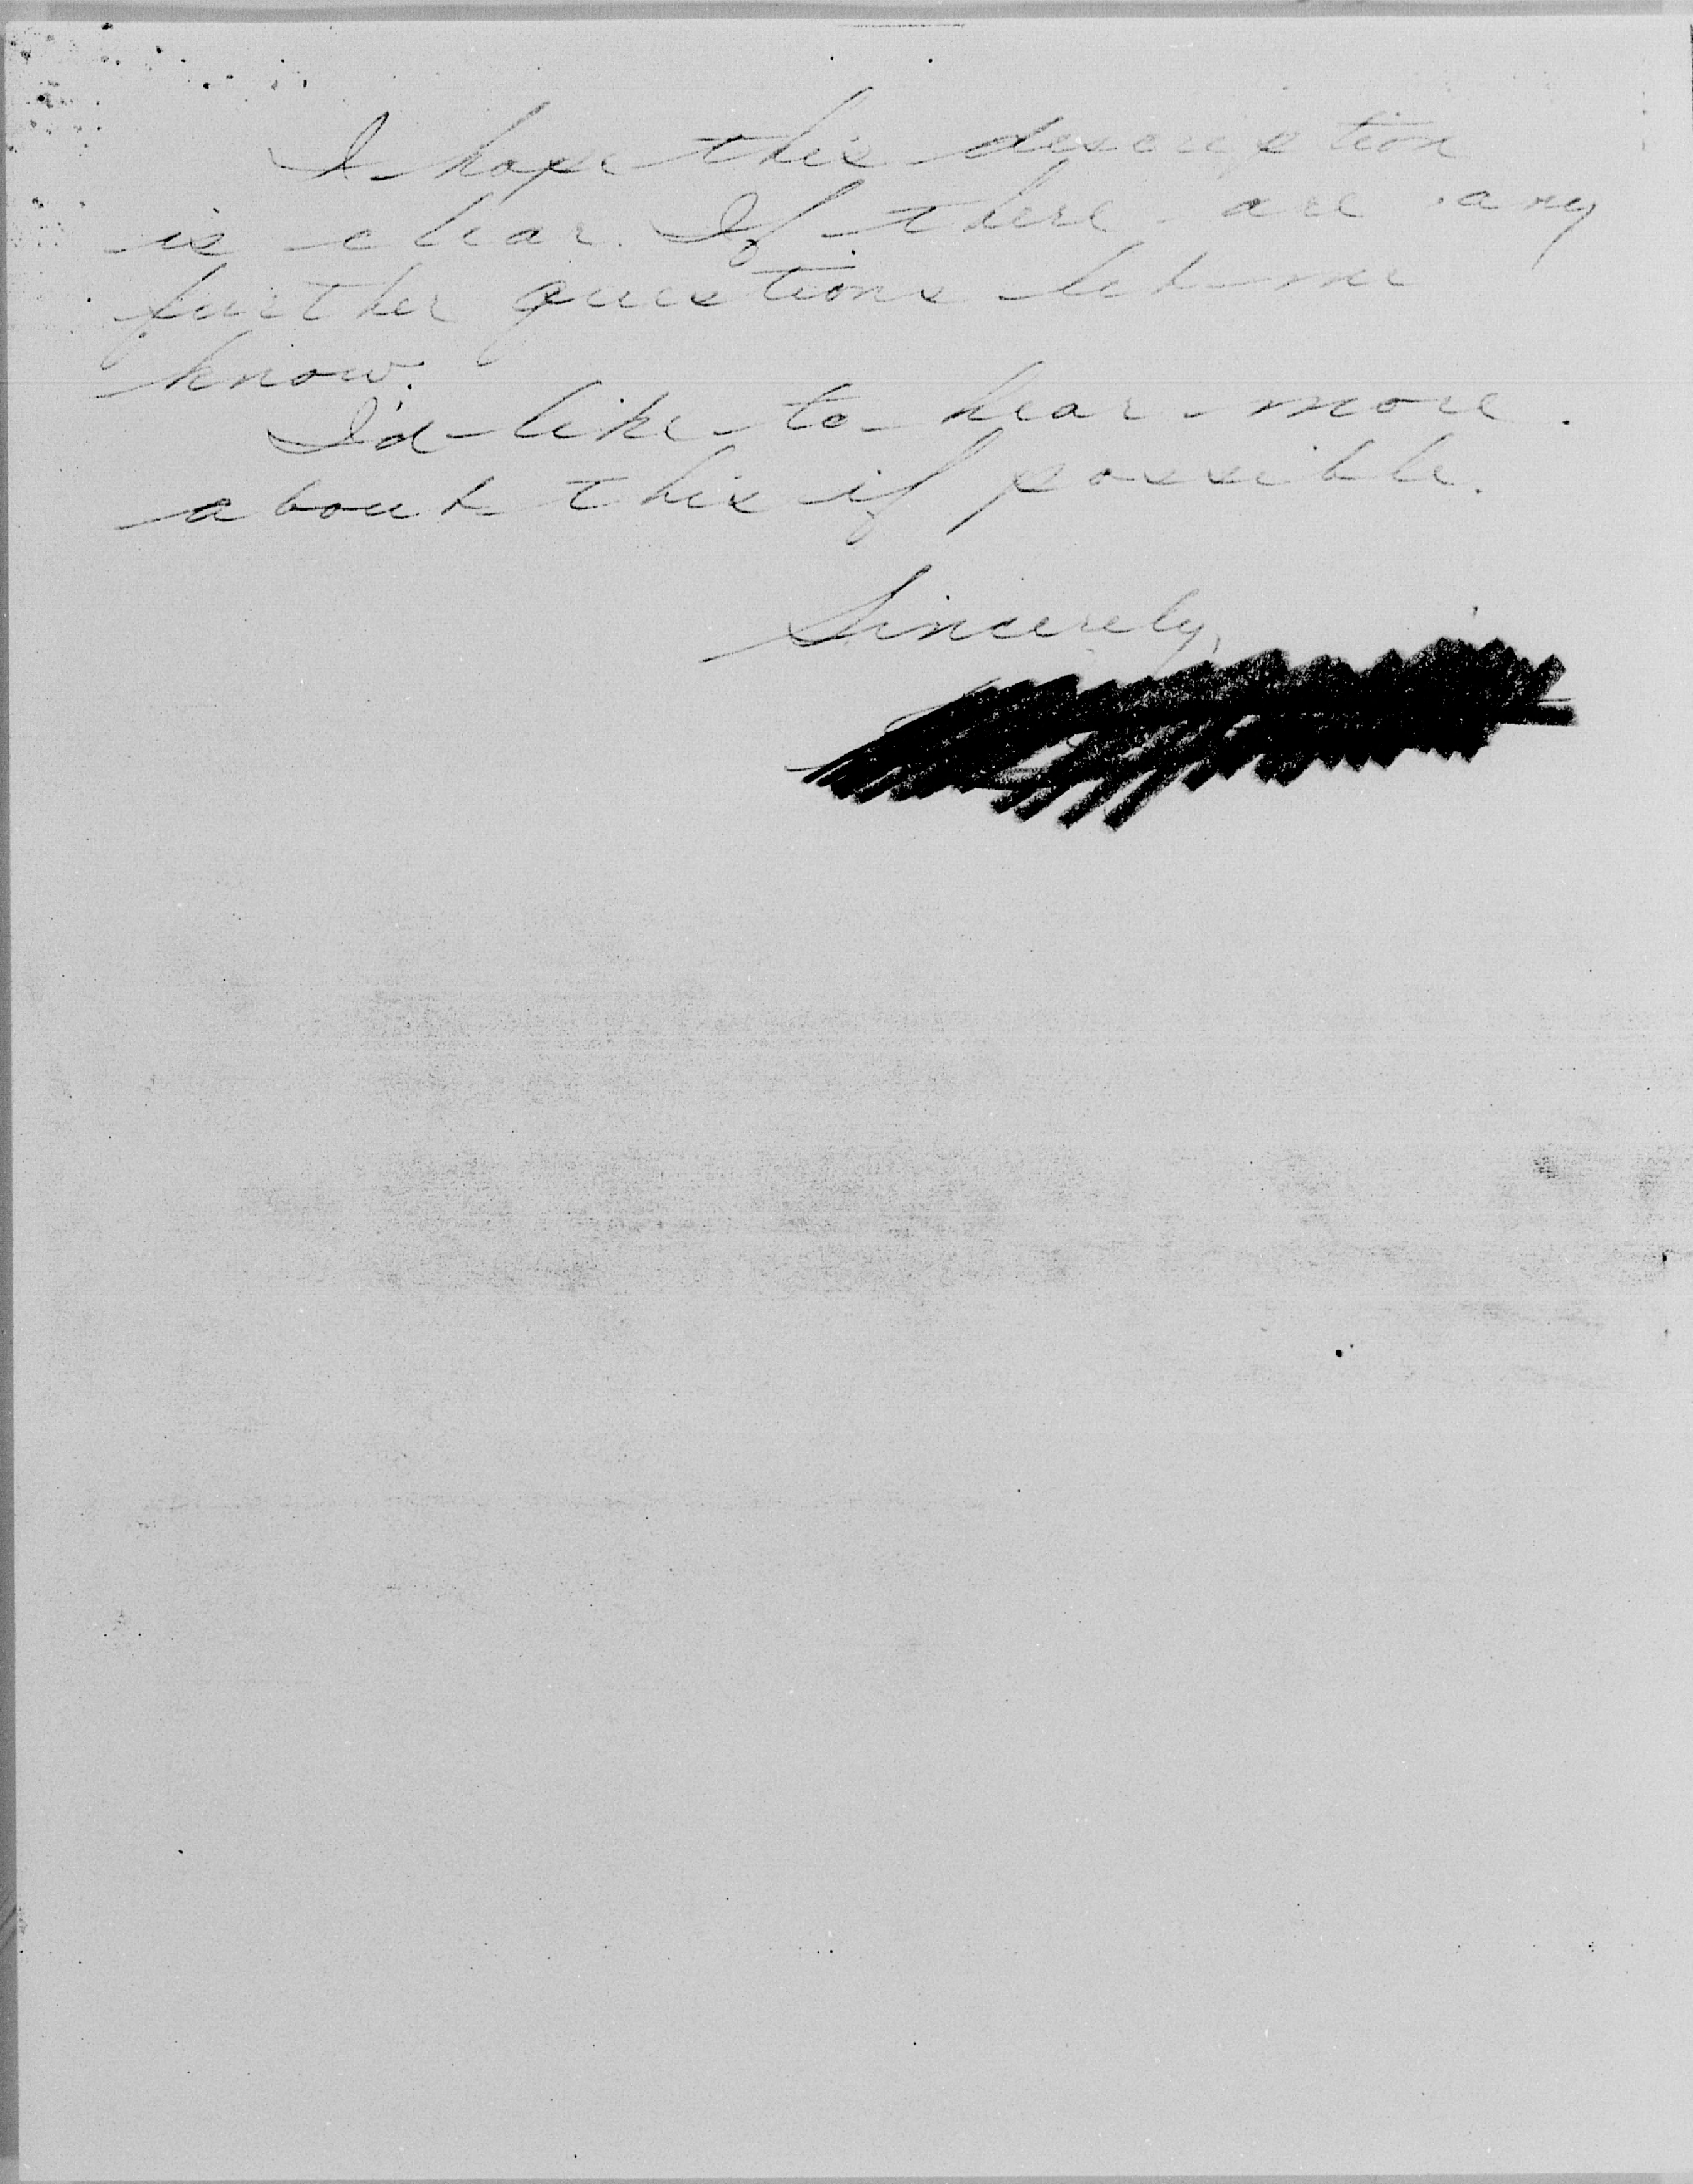 I hope this description
is clear. If there are any
further questions let me
know.
I'd like to hear more
about this if possible.
Sincerely,